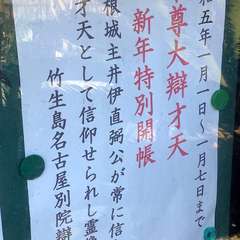 和五年一月一日〜一月七日まで
尊大辯才天
新年特別開帳
根城主井伊直弼公が常に信
才天として信仰せられし霊像
竹生島名古屋別院辯